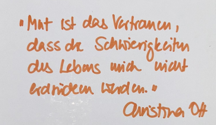 "Mut ist das Vertrauen,
dass die Schwierigkeiten
des Lebens mich nicht
erdrücken werden."
Christina Ott